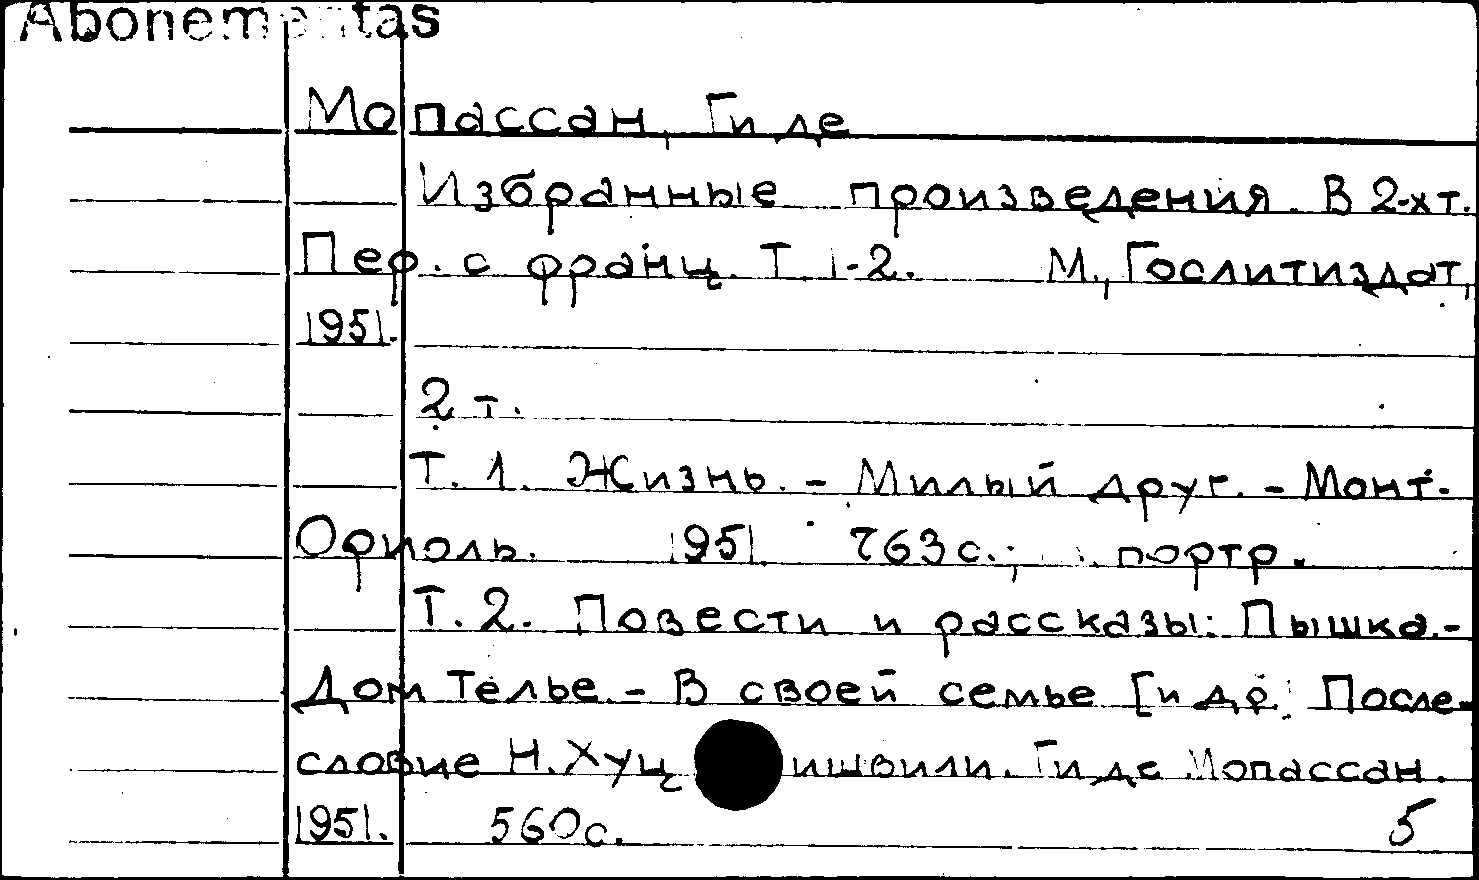 Abonementas
Мопассан, Ги де
Избранные произведения. В 2-х т.
Пер. с франц. Т. 1-2. М., Гослитиздат,
1951.
2 т.
Т. 1. Жизнь. - Милый друг. - Монт-
Ориоль. 1951. 763 с.; портр.
Т. 2. Повести и рассказы: Пышка. -
Дом Телье. - В своей семье [и др. После-
словие Н. Хуц ишвили. Ги де Мопассан.
1951. 560 с. 5